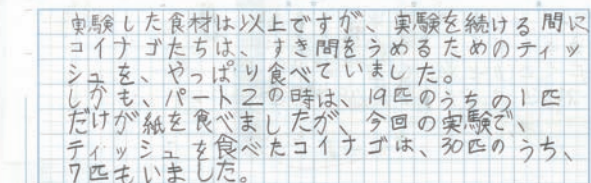 実験した食材は以上ですが、実験を続ける間に
コイナゴたちは、すき間をうめるためのティッ
シュを、やっぱり食べていました。
しかも、パート2の時は、19匹のうちの1匹
だけが紙を食べましたが、今回の実験で、
ティッシュを食べたコイナゴは、30匹のうち、
7匹もいました。